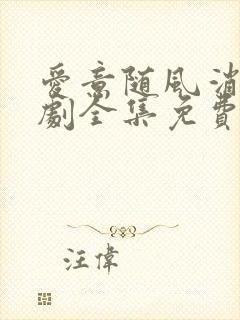 愛意随風消
劇全集免費
汪偉